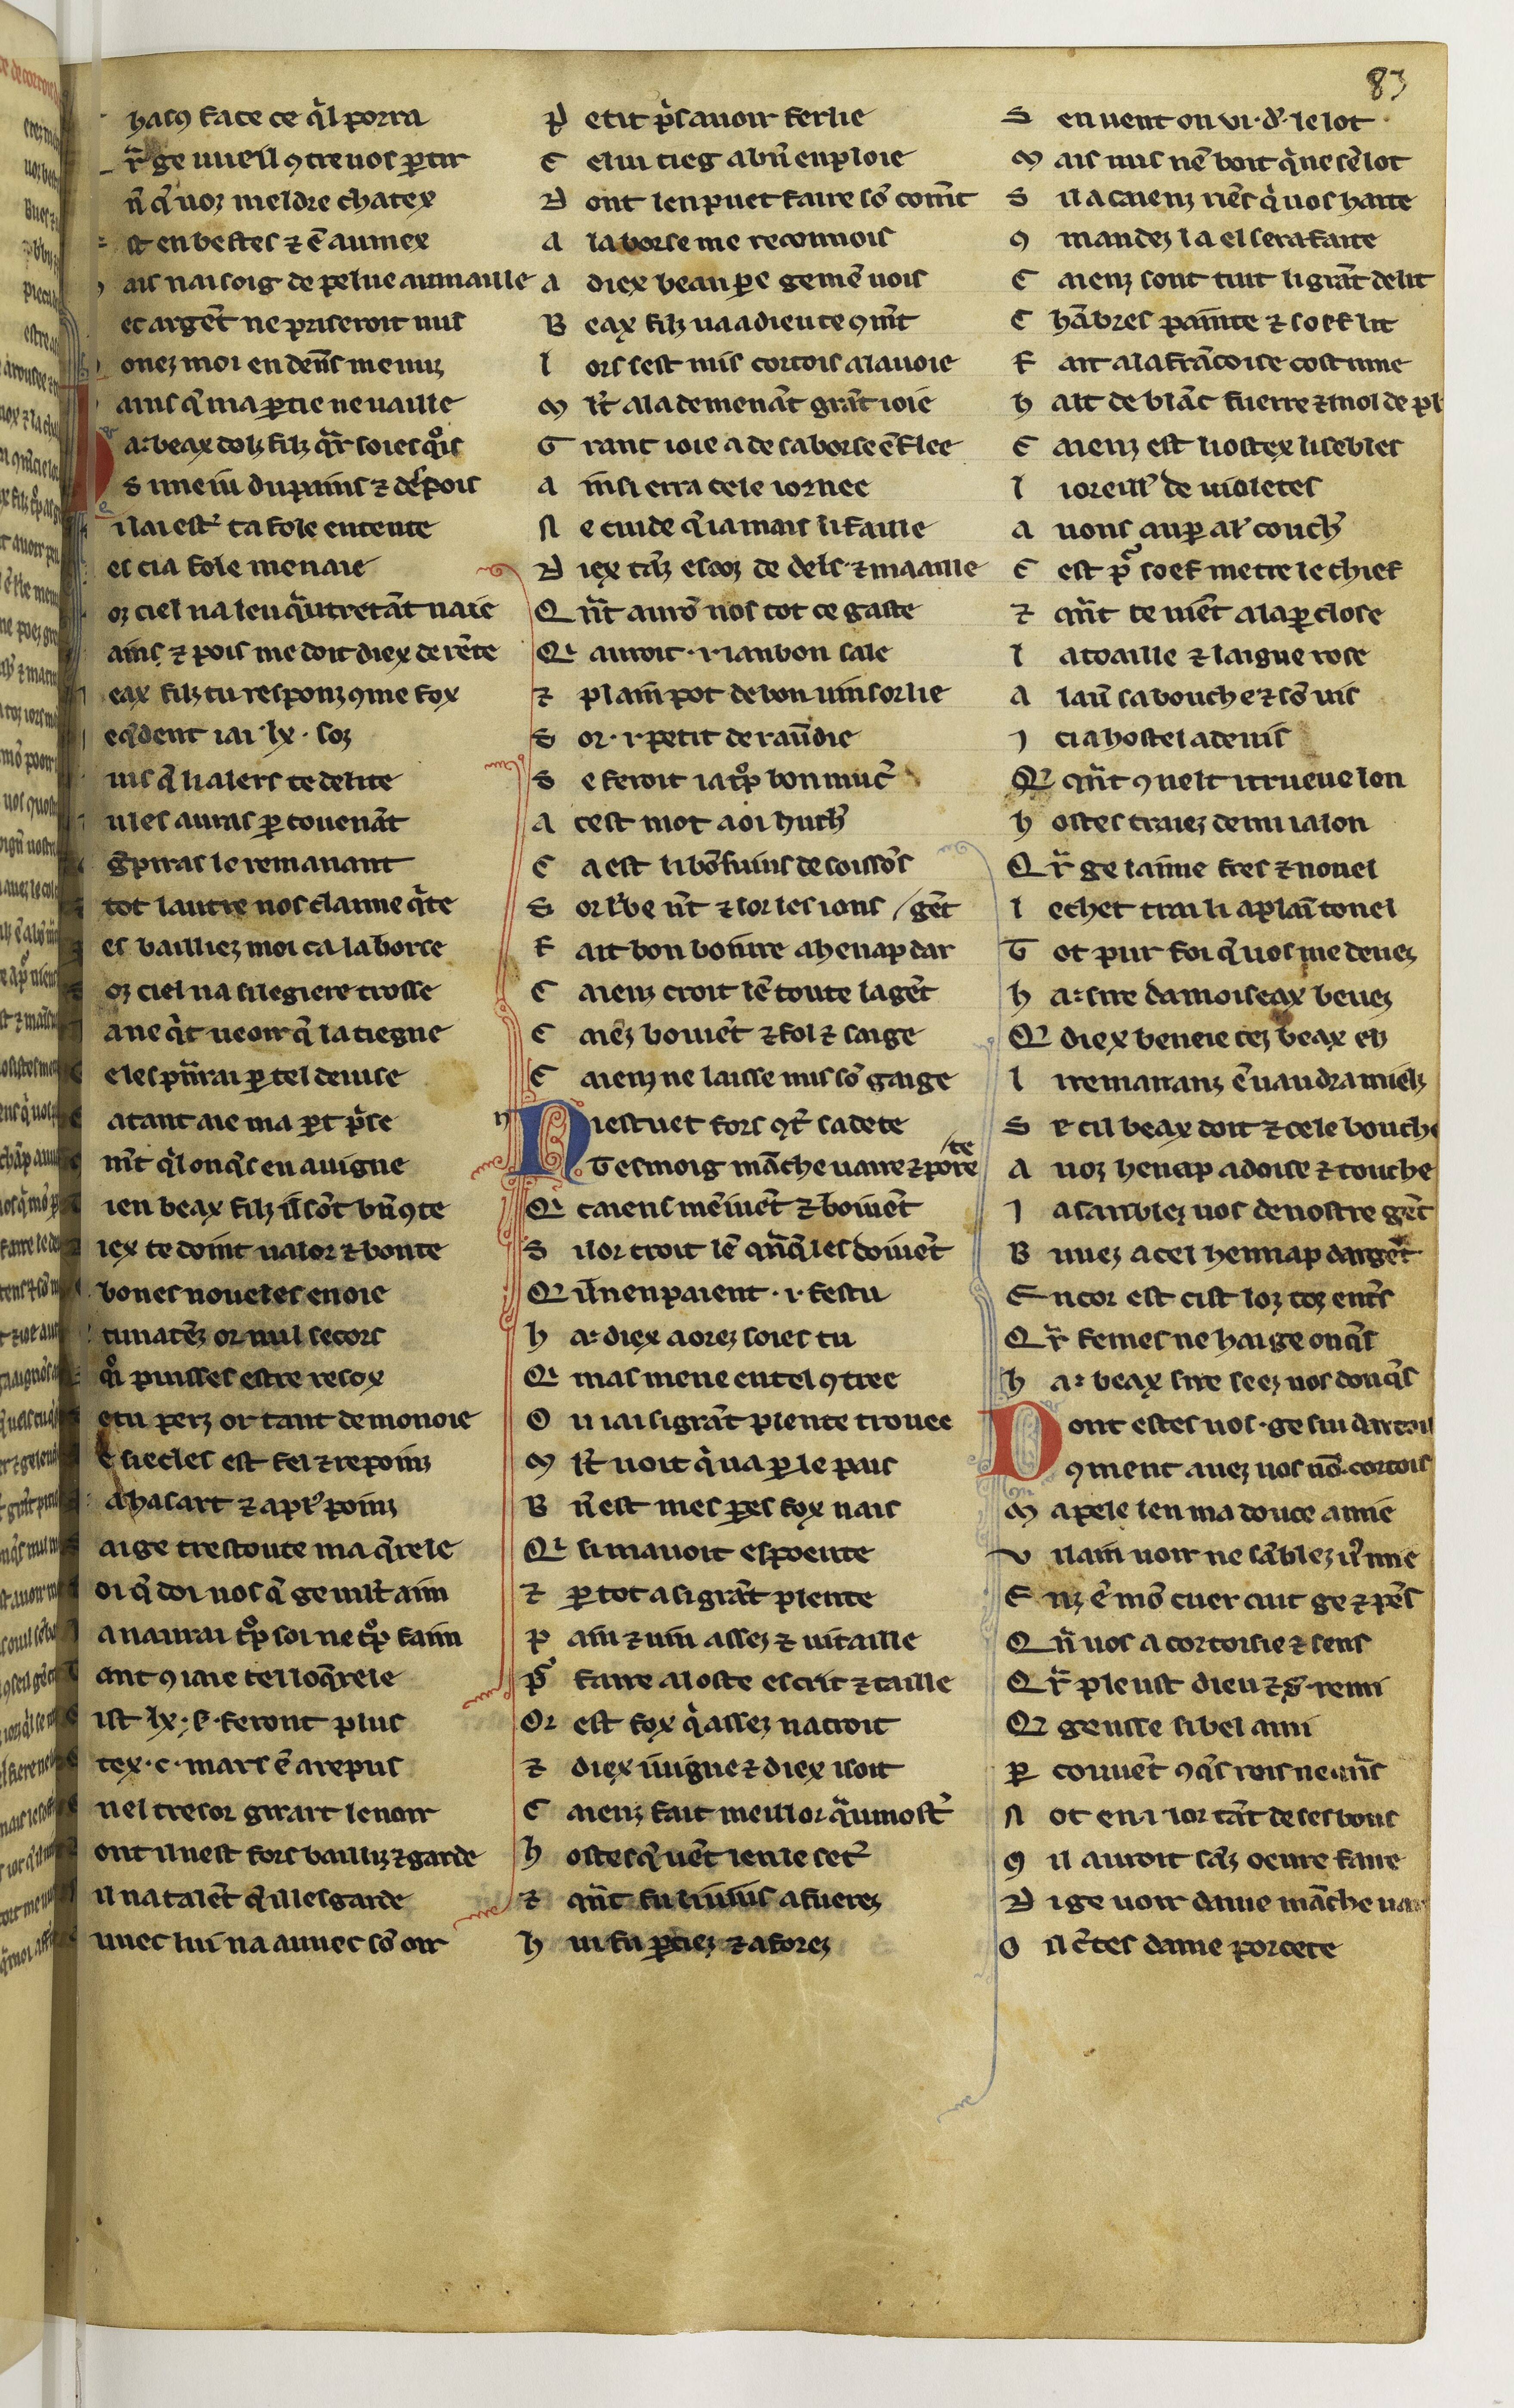 83
hascũ face ce q̃l porra
r̃ ge uueil ꝯtre uos ꝑtir
ñ q̃ uoz meldre chatex
st en bestes ⁊ ẽ aumex
ais nai soig de pelue aumaille
ec argẽt ne priseroit nus
onez moi en deñs menuz
ains q̃ ma ꝑtie ne uaille
a beax dolz filz q̃r soies q̊is
s une iu du pains ⁊ de pois
il ai est ta fole entente
es ci a fole menaie
oz ciel na leu q̃ utretãt naie
ains ⁊ pois me doit diex de rẽte
eax filz tu responz ꝯme fox
eq̃dent iai .lx. soz
uis q̃ li alers te delite
ules auras ꝑ couenãt
g̃piras le remanant
tot lautre nos claime q̃te
es bailliez moi ca la borse
oz ciel na si legiere trosse
ane q̃t ueoir q̃ la tiegne
eles pñrai ꝑ tel deuise
atant aie ma ꝑt p̃se
m̃t q̃l onq̃s en auigne
ien beax filz il sõt bñ ꝯte
iex te doint ualor ⁊ bonte
bones noueles en oie
tunatẽz or nul secors
q̊i puisses estre resox
etu perz or tant de monoie
e siecles est fel ⁊ repoinz
a hasart ⁊ a pl̃ poinz
ai ge trestoute ma q̃rele
oi q̃ doi uos q̃ ge mlt aim
a naurai tp̊ soi ne tp̊ faim
ant ꝯ iaie tel loq̃rele
ist .lx. s. feront plus
tex .c. mars ẽ a repus
nel tresor girart lenoir
ont il nest fors bailliz ⁊ garde
il na talẽt q̃ il les garde
unec lui na auuec sõ oir
P etit p̃s auoir ferlie
C elui tieg a bñ enploie
D ont len puet faire sõ com̃t
A la borse me reconnois
A diex beau ꝑe ge mẽ uois
B eax filz ua a dieu te ꝯm̃t
L ors sest mis cortois a la uoie
M lt̃ ala demenãt grãt ioie
G rant ioie a de sa borse ẽflee
A insi erra cele iornee
N e cuide q̃ iamais li faille
D iex tãz escoz de dels ⁊ maaille
Q ñt aurõ nos tot ce gaste
Qi auroit .i. ianbon sale
⁊ plain pot de bon uin sor lie
S or .i. petit de rauṽdie
S e feroit ia tp̊ bon muc̃
A cest mot a oi huch̃
C a est li bõs uins de soissõs
S or lerbe ũt ⁊ sor les ions / gẽt
F ait bon boiure a henap dar
C aienz croit lẽ toute la gẽt
C aiẽz boiuẽt ⁊ fol ⁊ saige
C aienz ne laisse nus sõ gaige
N iestuet fors ꝯt̃ sa dete
Tesmoig mãche uaire ⁊ pore / te
Qi caiens mẽiuẽt ⁊ boiuẽt
S i lor croit lẽ q̃nq̃ les doiuẽt
Qi ñ en paient .i. festu
H a diex aorez soies tu
Qi mas mene en tel ꝯtree
O u iai si grãt plente trouee
M lt̃ uoit q̃ ua ꝑ le pais
B ñ est mes ꝑes fox nais
Qi si mauoit espoente
⁊ ꝑtot a si grãt plente
P ain ⁊ uin assez ⁊ uitaille
P̃ faire al oste escrit ⁊ taille
Or est fox q̃ assez na croit
⁊ diex i uigne ⁊ diex i soit
C aienz fait meillor q̃ u most̃
H ostes q̃ uẽt ien le set̃
⁊ q̃ñt fu li uuis a fuerez
H ui fu ꝑciez ⁊ aforez
S en uent on .vi. d. le lot
M ais nus nẽ boit q̃ ne sẽ lot
S il a caienz riẽs q̃ uos haite
ꝯ mandez la el sera faite
C aienz sont tuit li grãt delit
C hãbres paintes ⁊ soef lit
F ait a la frãcoise costume
H alt de blãc fuerre ⁊ mol de pl
C aienz est li ostex li sebles
L i oreill̃ de uioletes
A uons au par al̃ couch̃
C est p̃ soef metre le chief
⁊ q̃ñt te uiẽt a la ꝑclose
L a toaille ⁊ laigue rose
A lau sa bouche ⁊ sõ uis
I ci a hostel a deuis
Qi q̃ñt ꝯ uelt i trueue len
H ostes traiez demi ialon
Q r̃ ge laime fres ⁊ nouel
L echet trai li a plaĩ tonel
T ot pur foi q̃ uos me deuez
H a sire damoiseax beuez
Qi diex beneie tez beax elz
L i remananz ẽ uaudra mielz
S e cil beax doit ⁊ cele bouche
A uoz henap adoise ⁊ touche
I a sanblez uos de nostre gẽt
B uuez a cel hennap dargẽt
E ncor est cist loz toz entr̃s
Q r̃ femes ne hai ge onq̃s
H a beax sire seez uos donq̃s
D ont estes uos .ge sui dartois
ꝯment auez uos nõ .cortois
M apele len ma douce amie
V ilain uoir ne sãblez u᷒ mie
E nz ẽ mõ cuer cuit ge ⁊ pẽs
Q ñ uos a cortoisie ⁊ sens
Q r̃ pleust dieu ⁊ s̃. remi
Qi geusse si bel ami
ꝑ couuẽt ꝯq̃s rois ne q̃ns
N ot en .i. ior tãt de ses bons
ꝯ il auroit sãz oeure faire
D i ge uoir dame mãche uai
O il c̃tes dame porcete